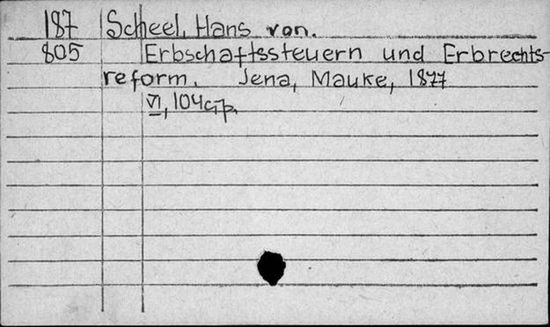 187 Scheel, Hans von.
805 Erbschaftssteuern und Erbrechts-
reform. Jena, Mauke, 1877
VI, 104 стр.